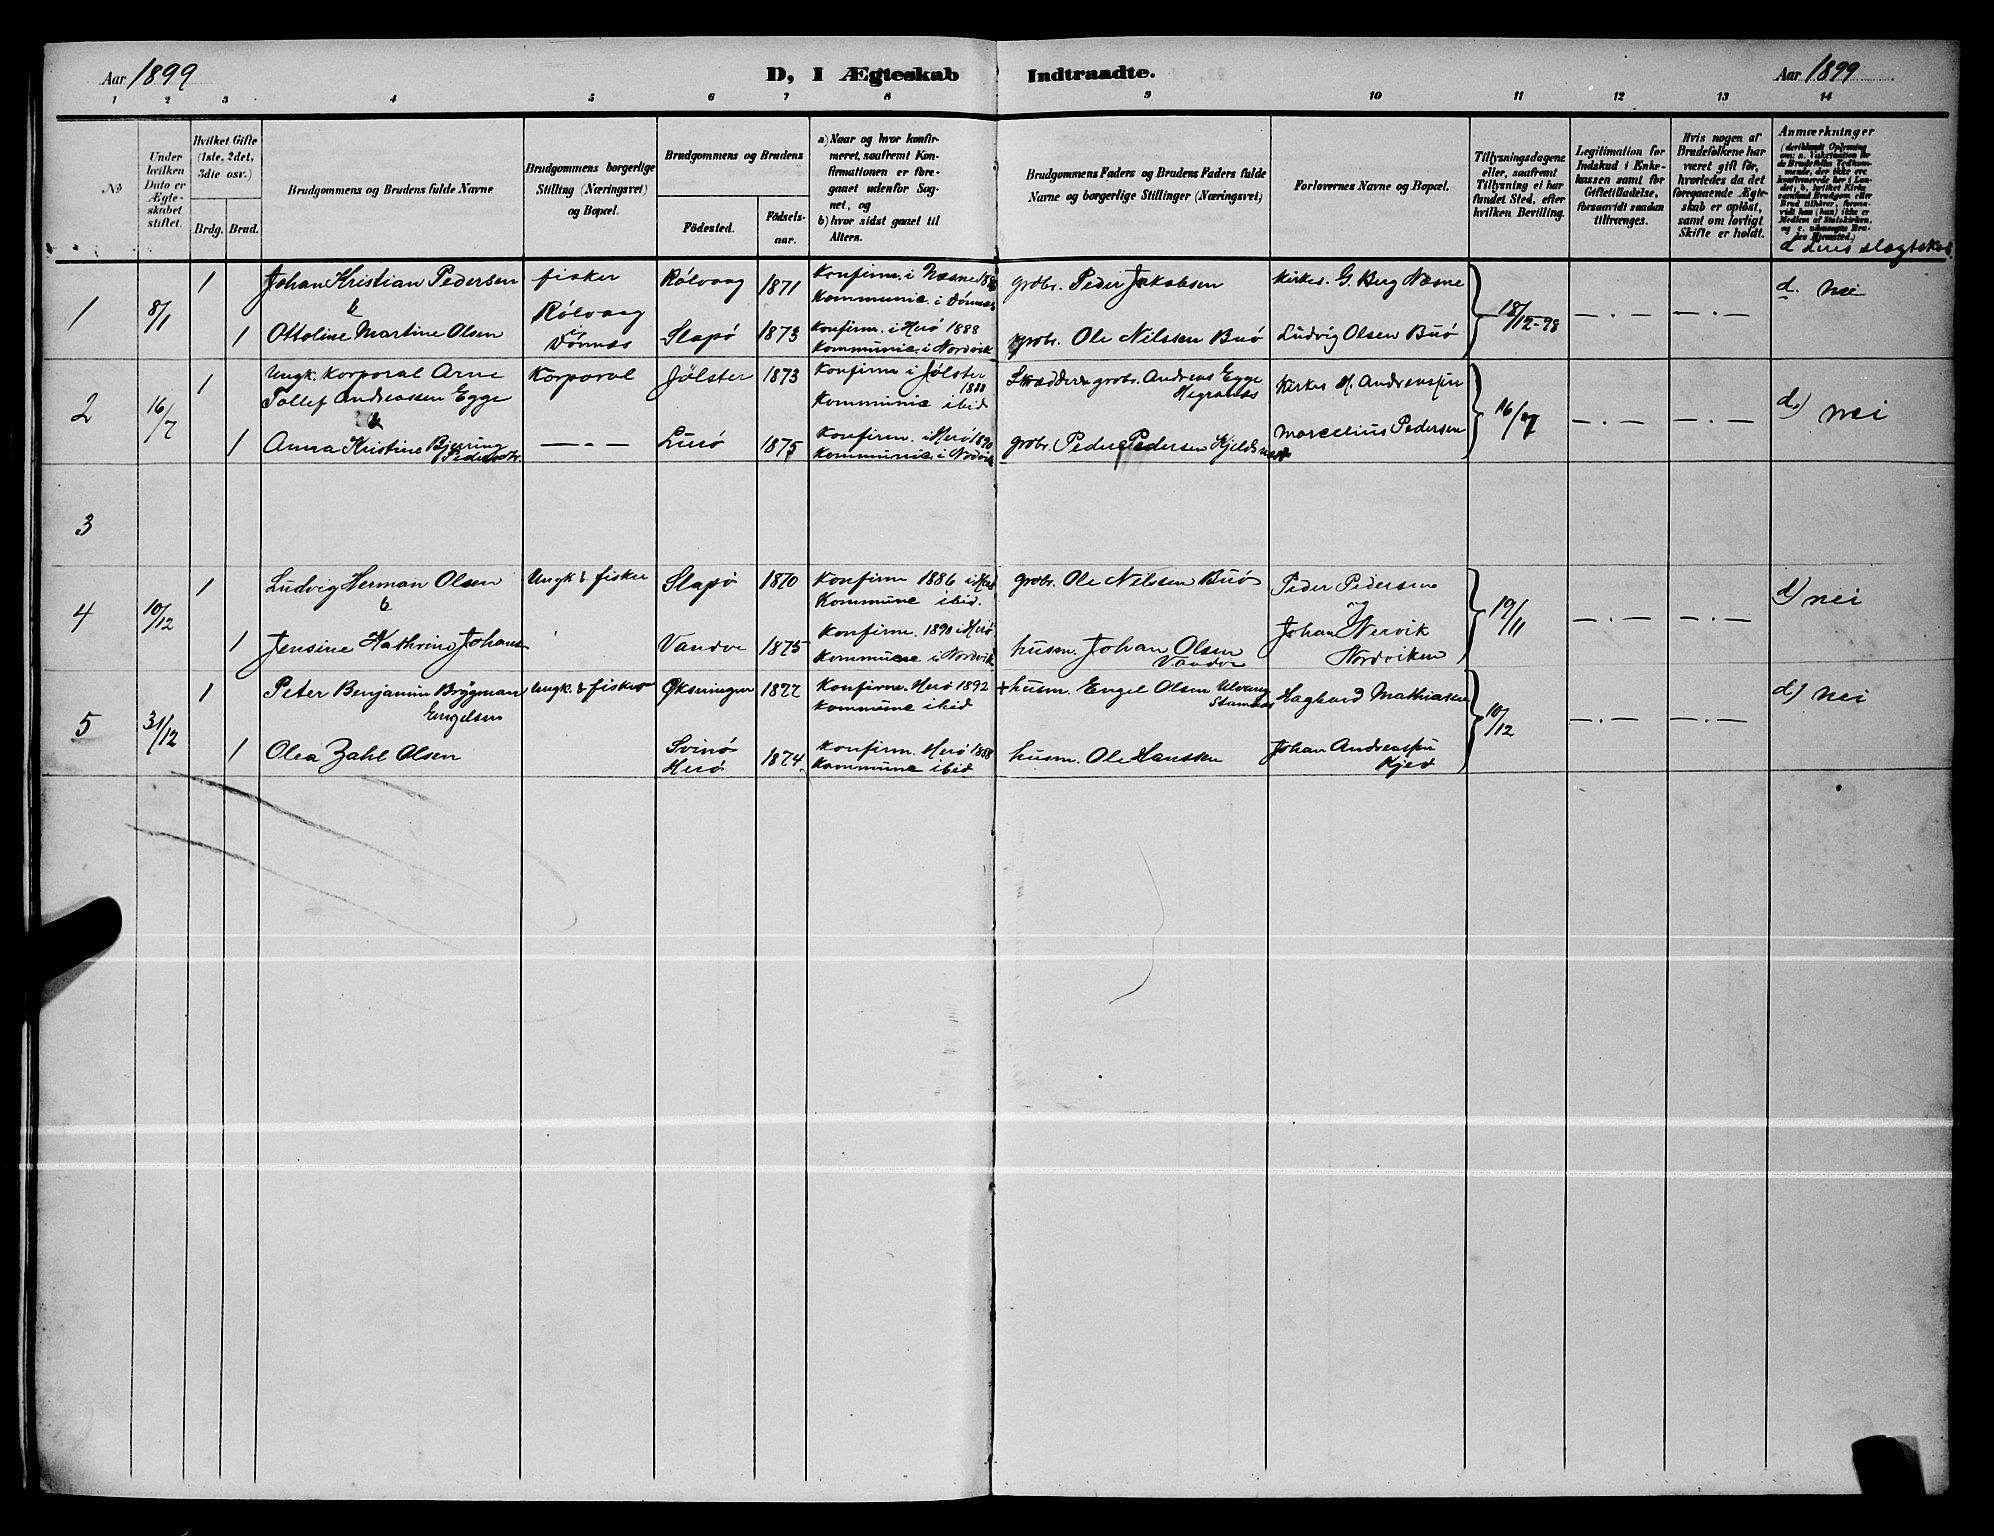 Aar 1899
D, I Ægteskab Indtraadte.
Aar 1899
1 2 3 4 5 6 7 8 9 10 11 12 13 14
№
Under hvilken Dato er Ægteskabet stiftet.
Hvilket Gifte (1ste, 2det, 3die osv.)
Brdg. Brud.
Brudgommens og Brudens fulde Navne
Brudgommens borgerlige Stilling (Næringsvei) og Bopæl.
Brudgommens og Brudens
Födested.
Födsels-aar.
a) Naar og hvor konfirmeret, saafremt Konfirmationen er foregaaet udenfor Sognet, og
b) hvor sidst gaaet til Altern.
Brudgommens Faders og Brudens Faders fulde Navne og borgerlige Stillinger (Næringsvei)
Forlovernes Navne og Bopæl.
Tillysningsdagene eller, saafremt Tillysning ei har fundet Sted, efter hvilken Bevilling.
Legitimation for Indskud i Enkekassen samt for Giftetilladelse, forsaavidt saadan tiltrænges.
Hvis nogen af Brudefolkene har været gift för, hvorledes da det foregaaende Ægteskab er oplöst, samt om lovligt Skifte er holdt.
Anmærkninger
d deres slægtskab
1
8/1
1
Johan Kristian Pedersen
&
fisker
Rølvaag
Dönnæs
Rölvaag
1871
Konfirm. i Næsne
Kommunic. i Dönnæs
grdbr. Peder Jakobsen
Kirkes. G. Berg Næsne
18/12-98
— . —
— . —
d. nei
1
Ottoline Martine Olsen
Slapö
1873
Konfirm. i Herö 1888
Kommunic. i Nordvik
grdbr. Ole Nilssen Buö
Ludvig Olsen Buö
2
16/7
1
Ungk. Korporal Arne
Tollef Andreassen Egge
&
Korporal
Jølster
1873
Konfirm i Jølster
1888
Kommunic ibid
Skrædder & grdbr. Andreas Egge
Kirkes M. Andreassen
16/7
— . —
— . —
d.) nei
1
Anna Kristine Bjerring
Pedersdtr.
— „ —
Lurö
1875
Konfirm. i Herö 1890
Kommunic. i Nordvik
grdbr. Peder Pedersen
Marcelius Pedersen
3
4
10/12
1
Ludvig Herman Olsen
&
Ungk & fisker
Slapö
1870
Konfirm 1886 i Herö
Kommune ibid.
grdbr. Ole Nilssen Buö
Peder Pedersen
og
19/11
— . —
— . —
d) nei
1
Jensine Kathrine Johans
Vandve
1875
Konfirm. 1890 i Herö
Kommune i Nordvik
husm. Johan Olsen
Vandve
Johan Nervik
Nordviken
5
31/12
1
Peter Benjamin Brygman
Engelsen
Ungk. & fisker
Øksningen
1877
Konfirm. Herö 1892
Kommune ibid
+ husm. Engel Olsen Ulvang
Stamnes
Hagbard Mathiassen
10/12
— . —
— . —
d) nei
1
Olea Zahl Olsen
Svinö
Herö
1874
Konfirm. Herö 1888
Kommune ibid
husm. Ole Hanssen
Johan Andreassen